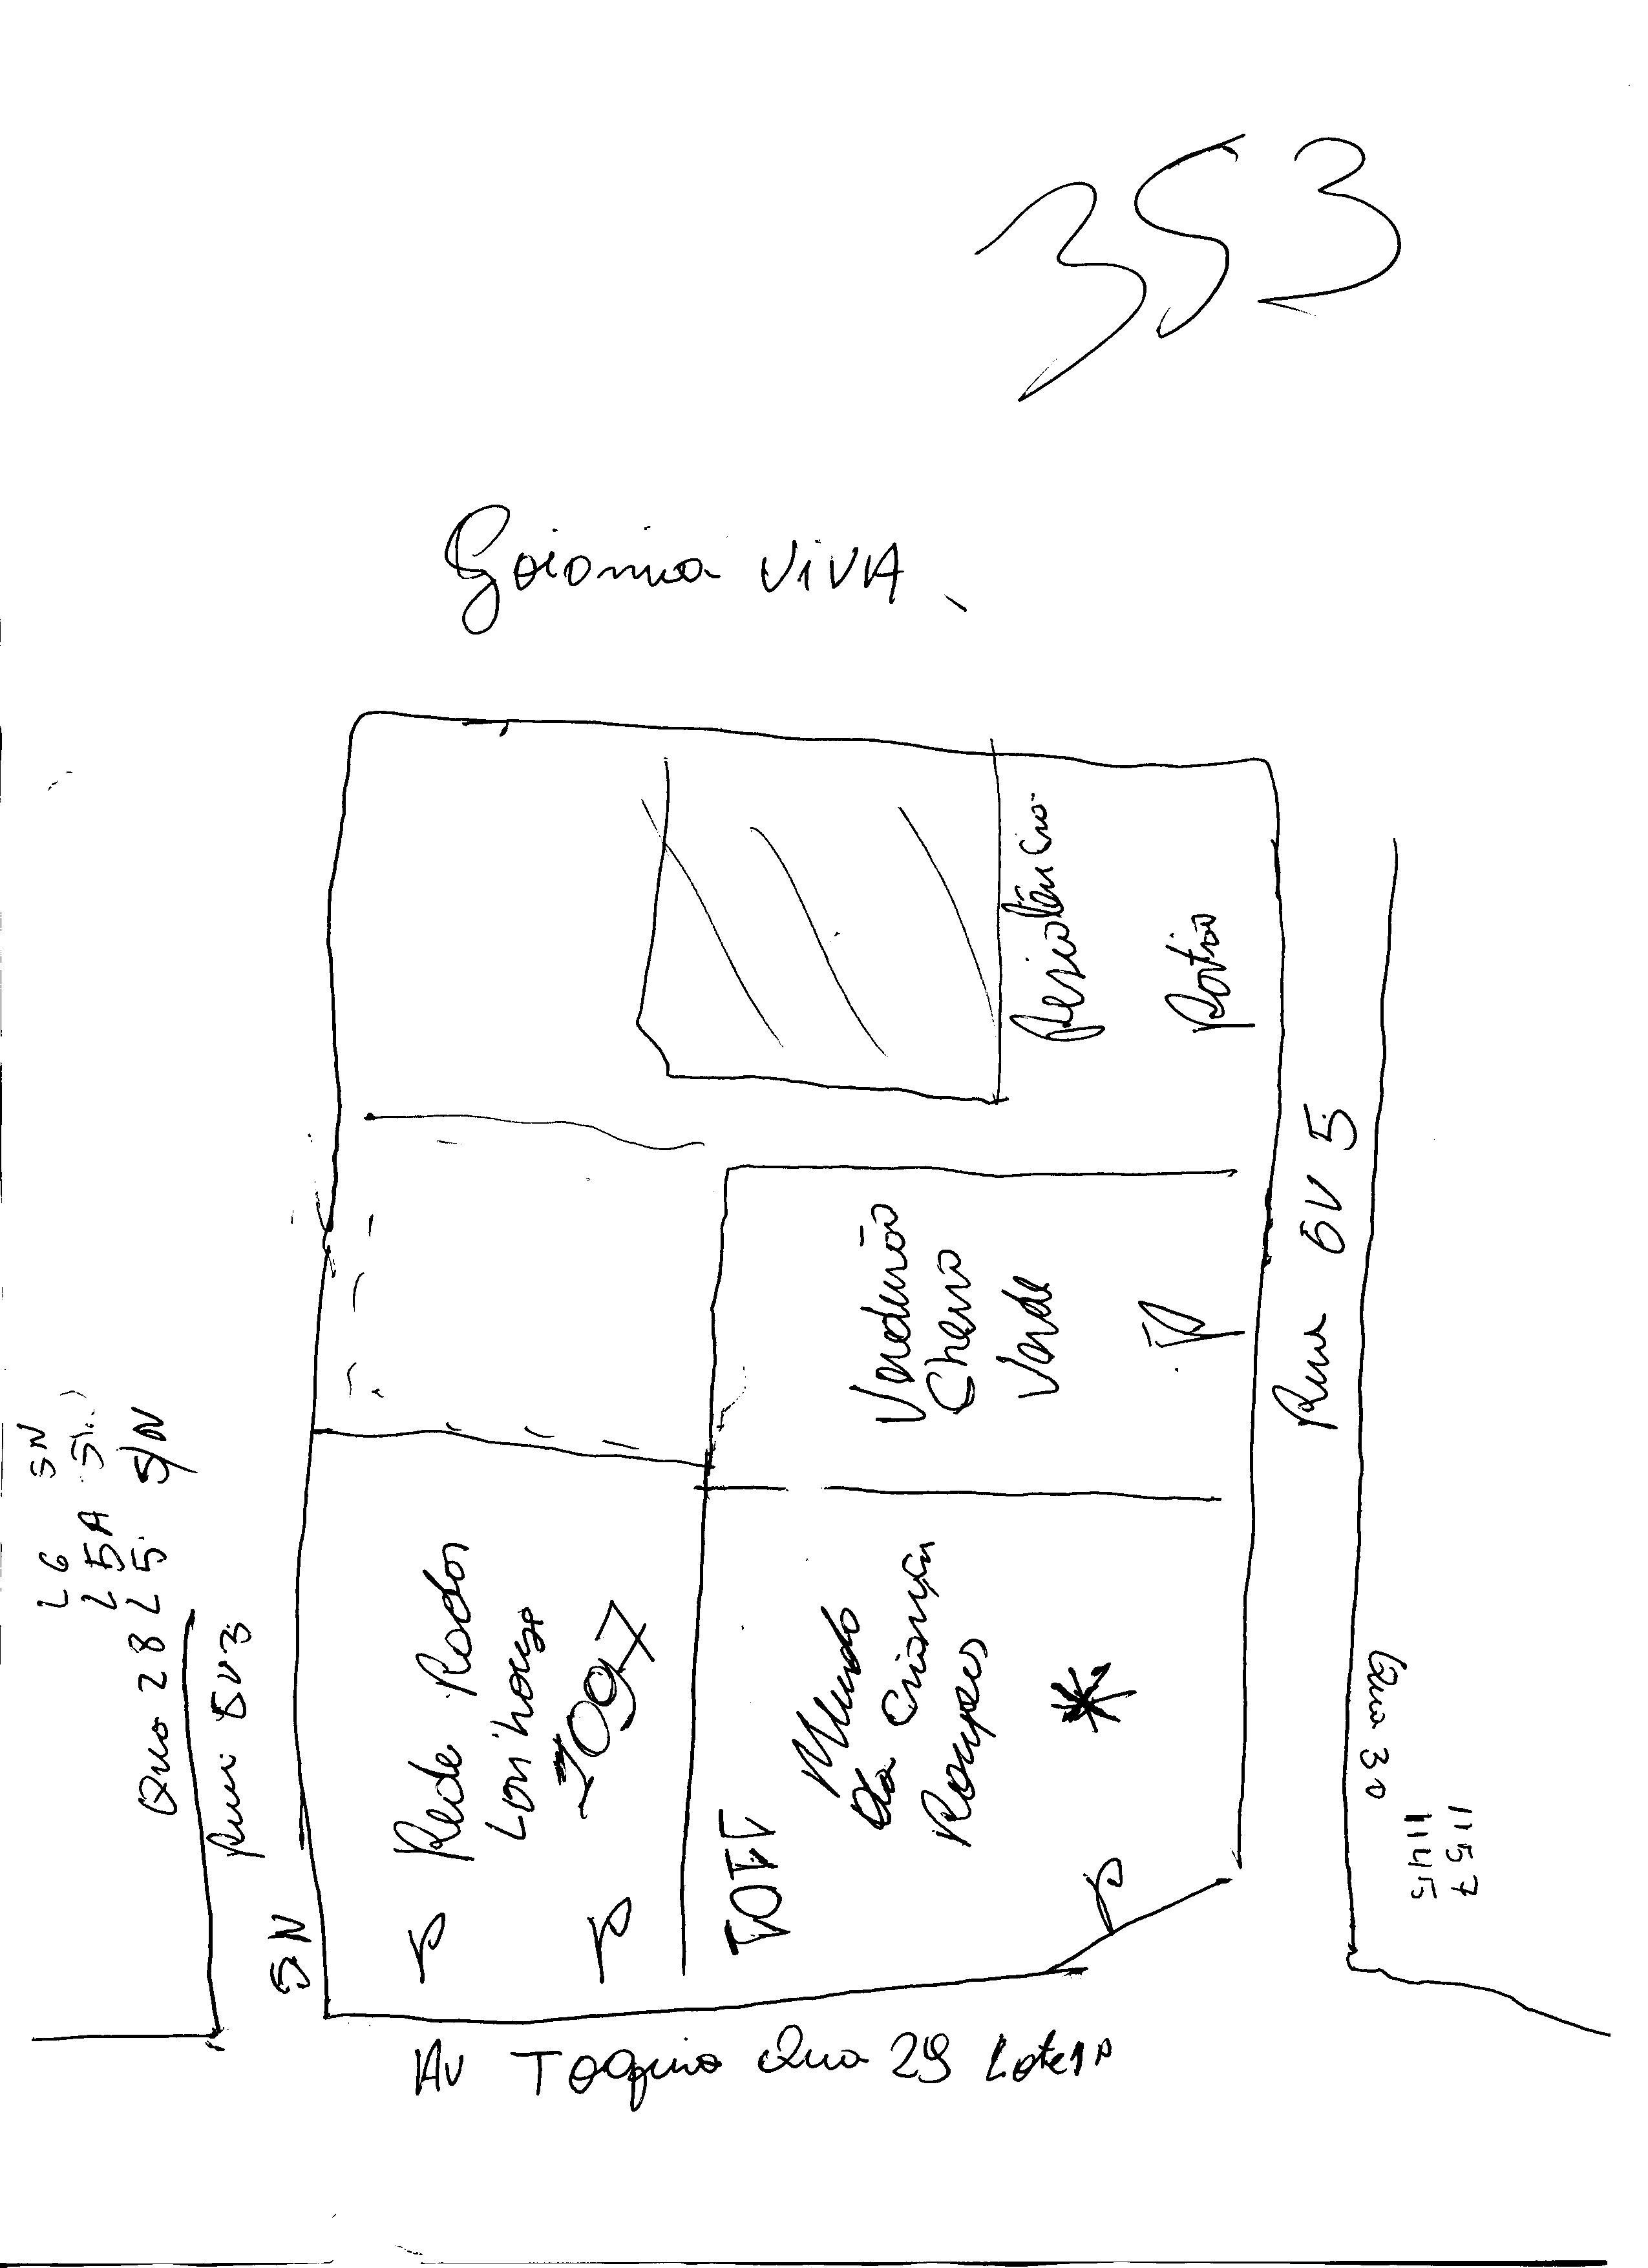 353
Goiania VIVA
Residência
Portão
Verdurão
Cheiro
Verde
P
Rua GV 5
L6 SN
L5A
L5 S/N
Qua 28
Rua GV3
SN
Rede
1097
P
P
Mundo
da Criança
Roupas
P
Qua 30
1157
1145
Av Toquio Qua 29 Lote 1A